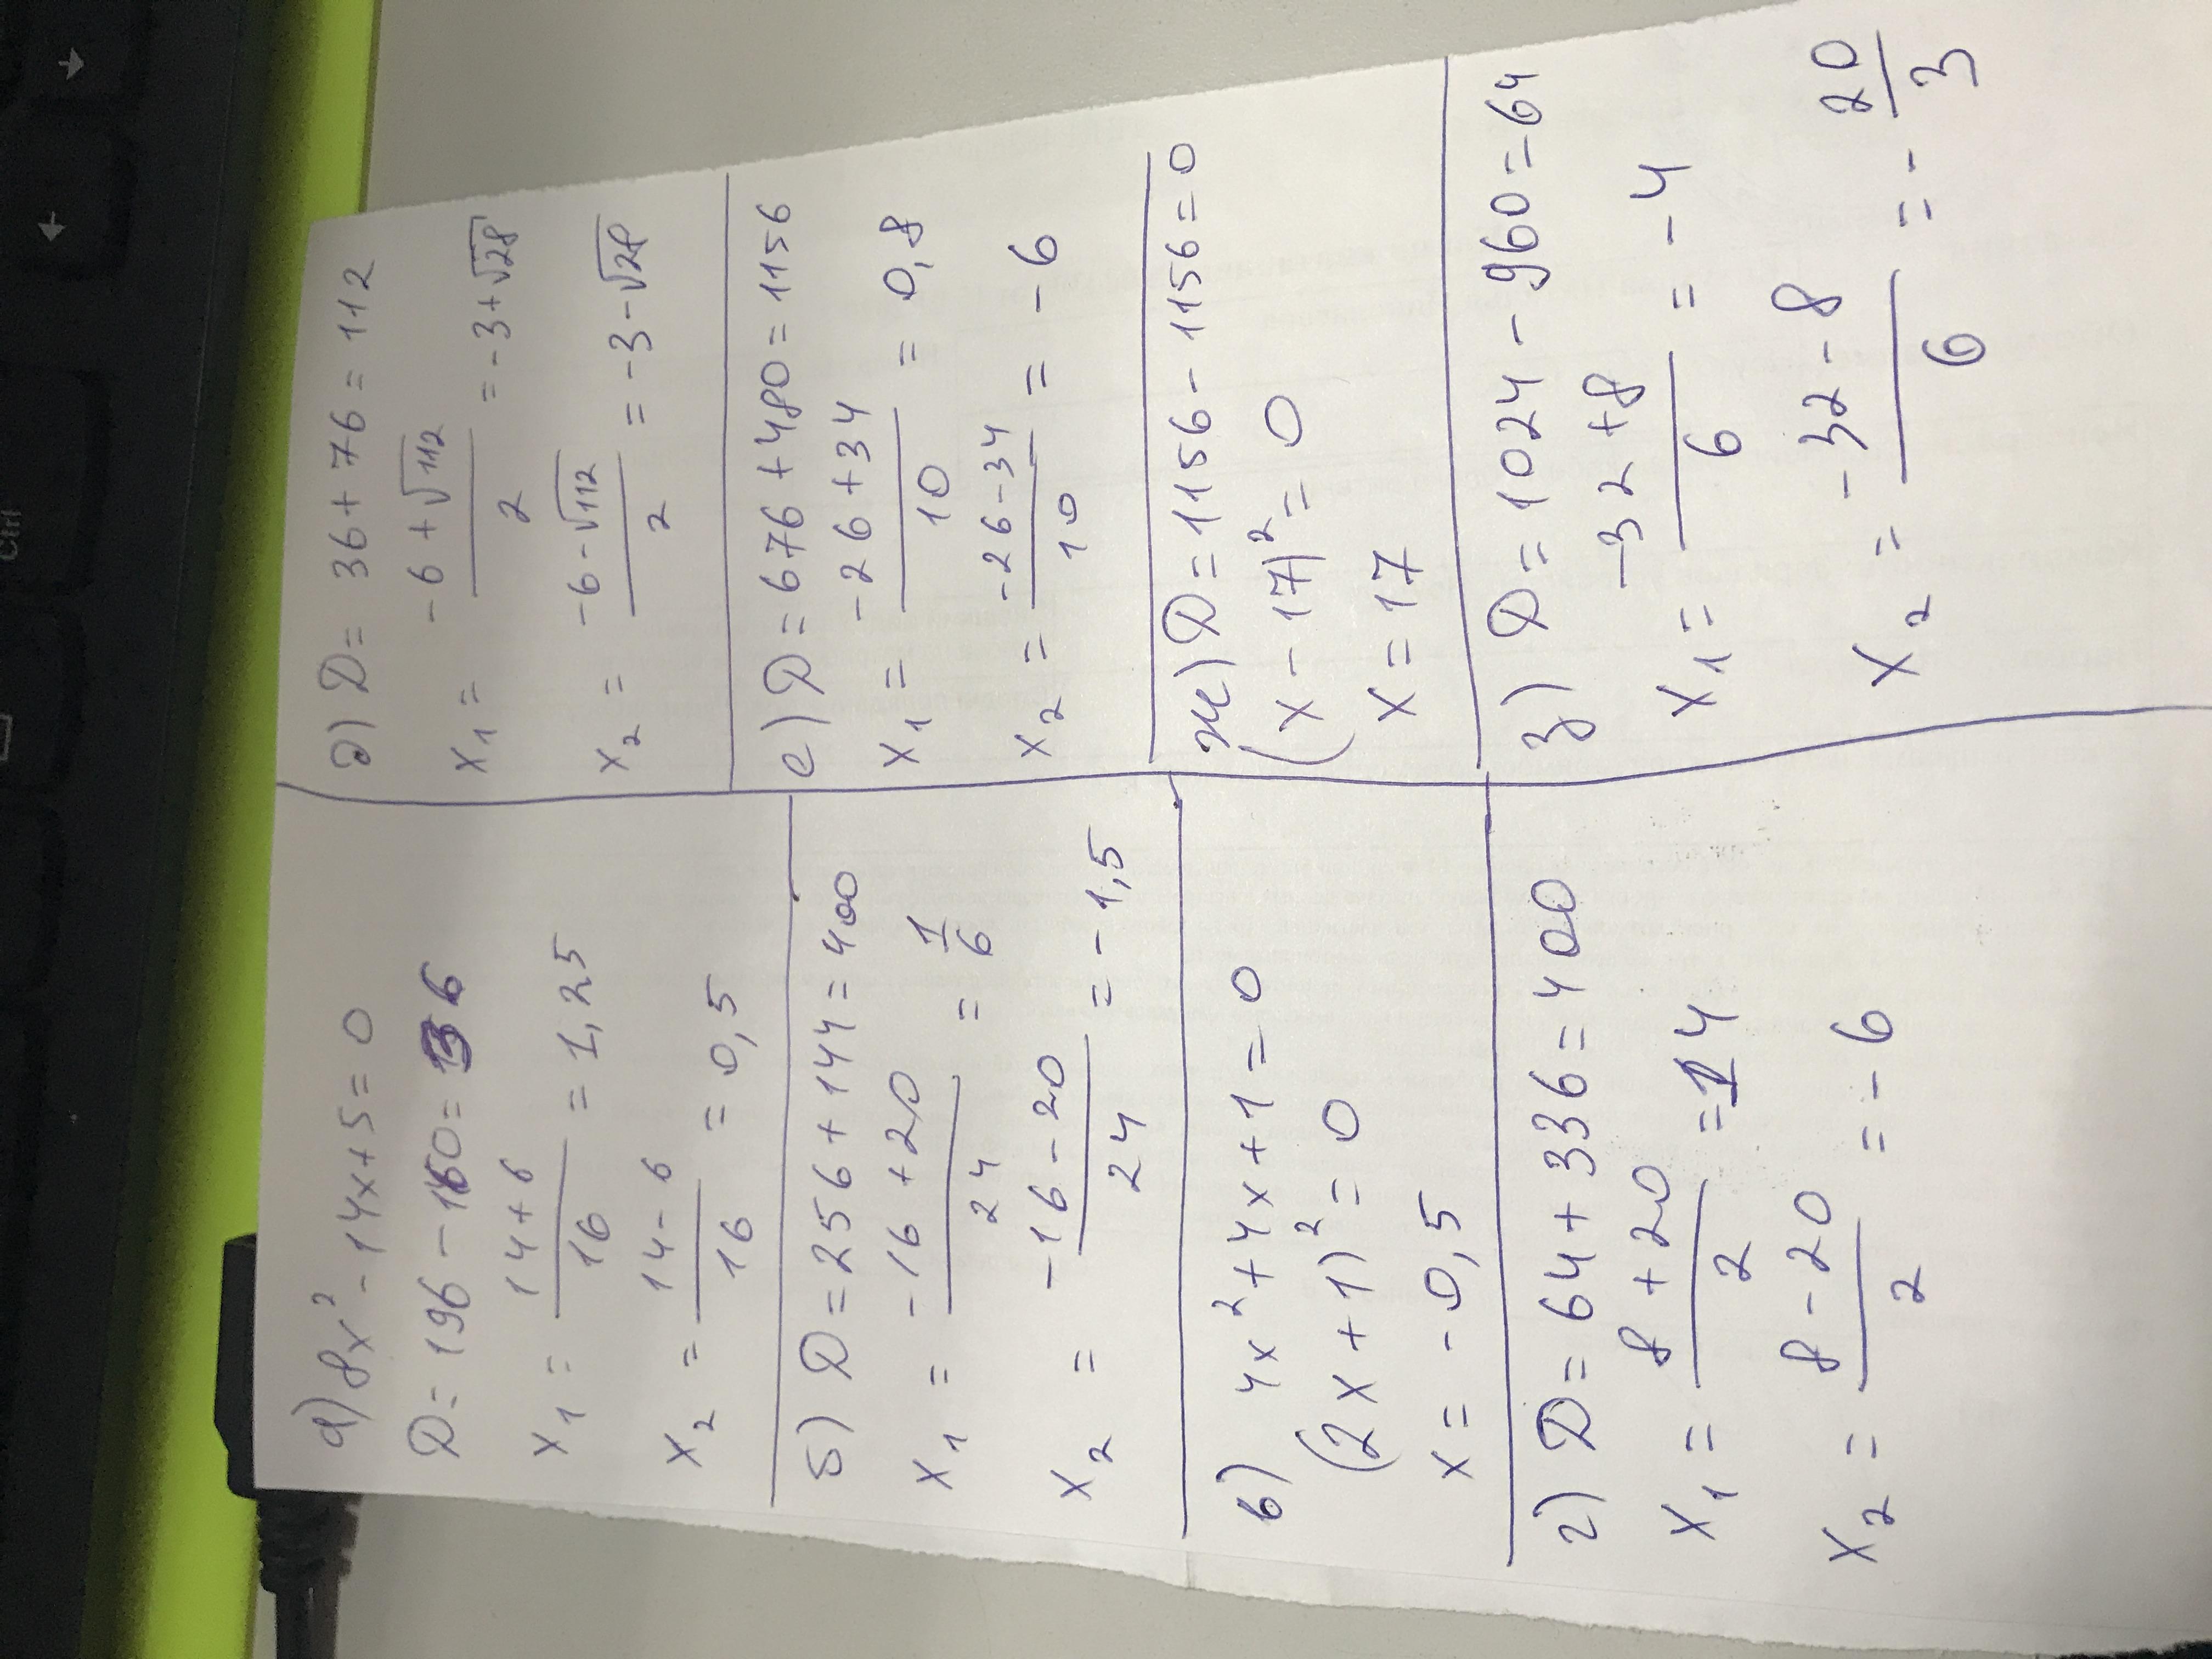 а) 8x² - 14x + 5 = 0
D = 196 - 160 = 36
x₁ = (14 + 6)/16 = 1,25
x₂ = (14 - 6)/16 = 0,5
б) D = 256 + 144 = 400
x₁ = (-16 + 20)/24 = 1/6
x₂ = (-16 - 20)/24 = -1,5
в) 4x² + 4x + 1 = 0
(2x + 1)² = 0
x = -0,5
г) D = 64 + 336 = 400
x₁ = (8 + 20)/2 = 14
x₂ = (8 - 20)/2 = -6
д) D = 36 + 76 = 112
x₁ = (-6 + √112)/2 = -3 + √28
x₂ = (-6 - √112)/2 = -3 - √28
е) D = 676 + 480 = 1156
x₁ = (-26 + 34)/10 = 0,8
x₂ = (-26 - 34)/10 = -6
ж) D = 1156 - 1156 = 0
(x - 17)² = 0
x = 17
з) D = 1024 - 960 = 64
x₁ = (-32 + 8)/6 = -4
x₂ = (-32 - 8)/6 = -20/3
Ctrl